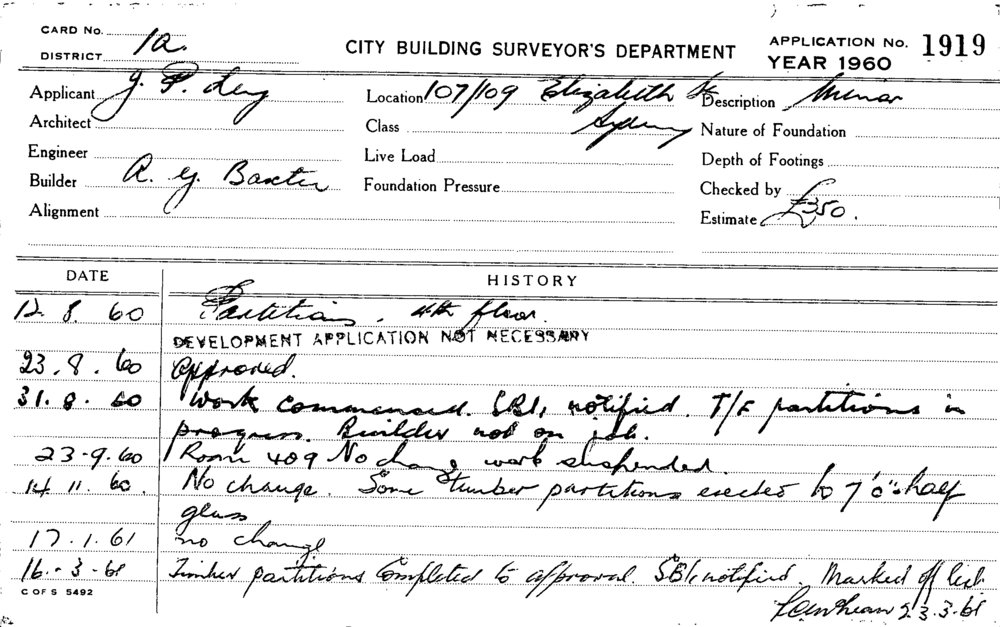 CARD No. 1a. CITY BUILDING SURVEYOR'S DEPARTMENT APPLICATION No. 1919
DISTRICT YEAR 1960
Applicant J. P. Location 107/109 Elizabeth St Description Minor
Architect Class Sydney Nature of Foundation
Engineer Live Load Depth of Footings
Builder A. G. Baxter Foundation Pressure Checked by
Alignment Estimate £350.
DATE HISTORY
12. 8. 60 Partitions. 4th floor.
DEVELOPMENT APPLICATION NOT NECESSARY
23. 8. 60 approved.
31. 8. 60 Work commenced. SBI, notified. T/F partitions in
progress. Builder not on job.
23-9-60 Room 409 No change work suspended.
14. 11. 60. No change. Some timber partitions erected to 7'0" half
glass
17. 1. 61 no change
16.-3-61 Timber partitions Completed to approval. SBI, notified. Marked off list
23.3.61
C OF S 5492